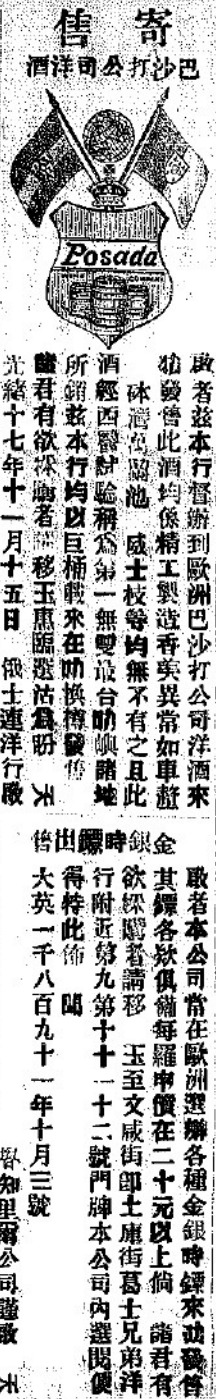 寄售
巴沙打公司洋酒
Posada
啟者茲本行督辦到歐洲巴沙打公司洋酒來
叻發售此酒均係精工製造香美異常如車厘
砵灣萬囒池 威士枝等均無不有之且此
酒經西醫試驗稱為第一無雙最合叻嶼諸埠
所銷茲本行均以巨桶載來在叻換樽發售
諸君有欲採購者請移玉惠臨選沽為盼 天
光緒十七年十一月十五日 俄士連洋行啟
金銀時鏢出售
啟者本公司常在歐洲選辦各種金銀時鏢來叻發售
其鏢各欵俱備每羅申價在二十元以上倘 諸君有
欲採購者請移 玉至文咸街即土庫街葛士兄弟洋
行附近第九第十十一十二號門牌本公司內選閱便
得特此佈 聞
大英一千八百九十一年十月三號
知里爾公司謹啟 天